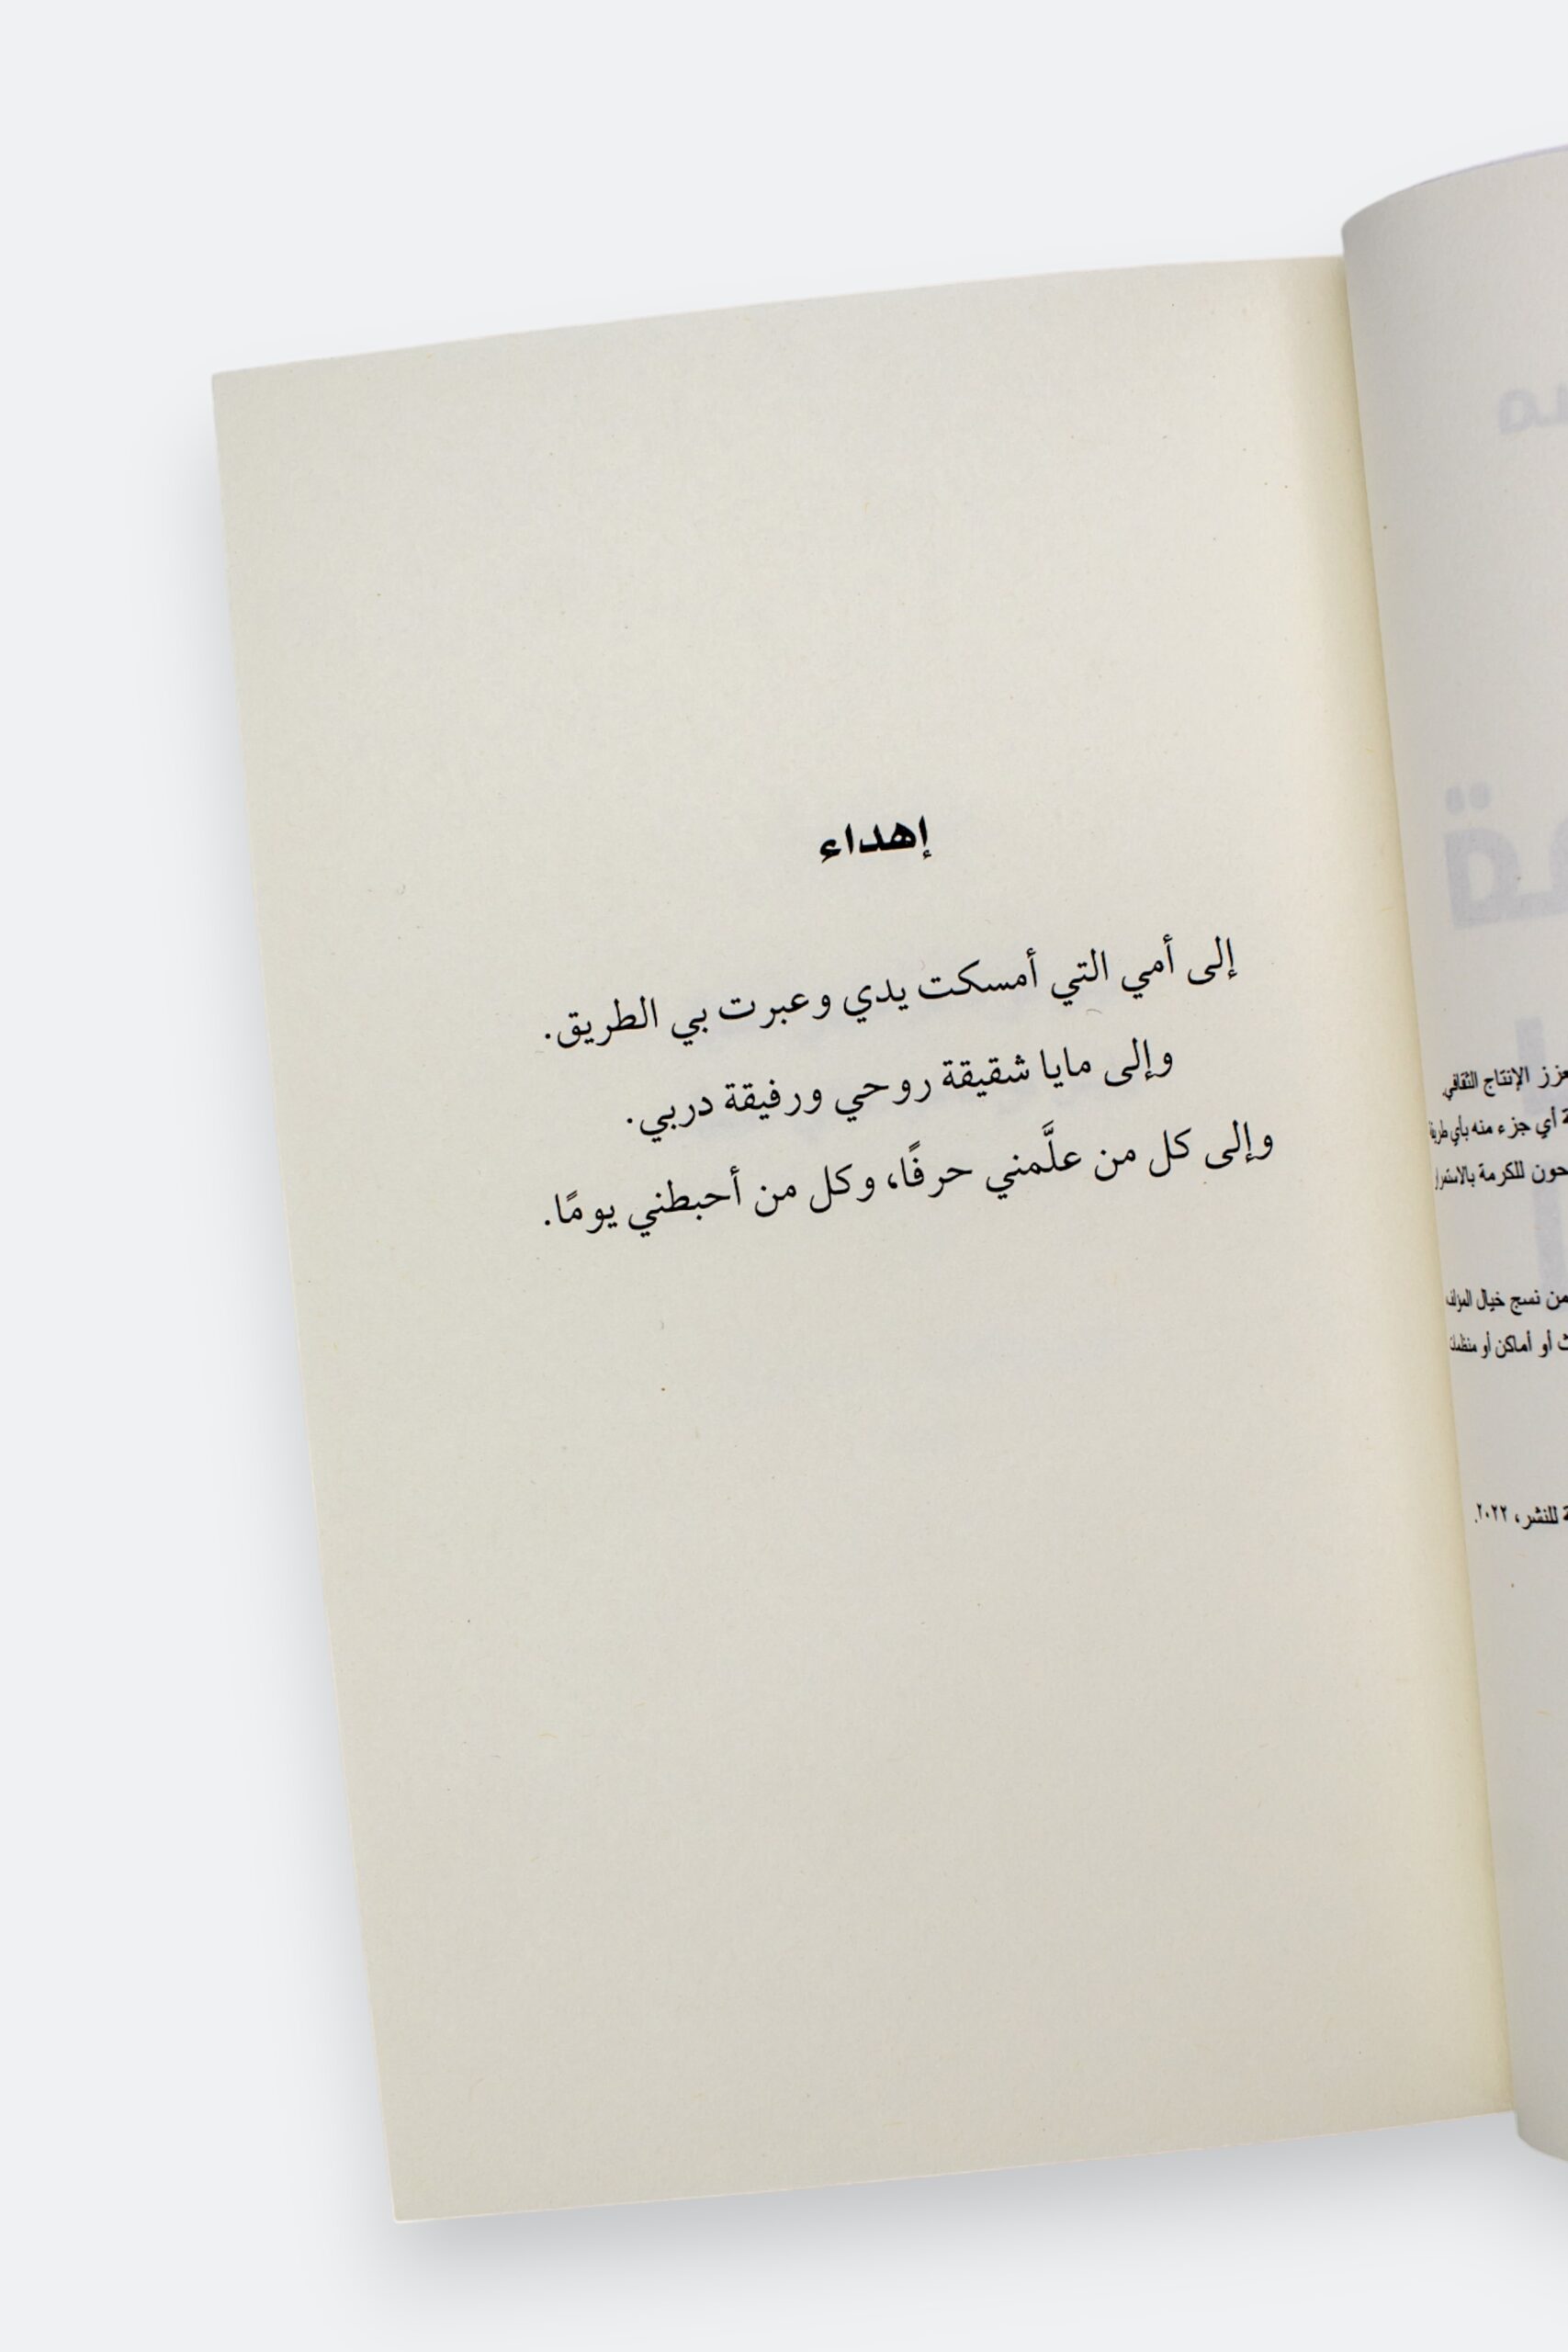 إهداء
إلى أمي التي أمسكت يدي وعبرت بي الطريق.
وإلى مايا شقيقة روحي ورفيقة دربي.
وإلى كل من علَّمني حرفًا، وكل من أحبطني يومًا.
الإنتاج الثقافي.
أي جزء منه بأي طريقة
للكرمة بالاستمرار
من نسج خيال المؤلف
أو أماكن أو منظمات
للنشر، ٢٠٢٢.